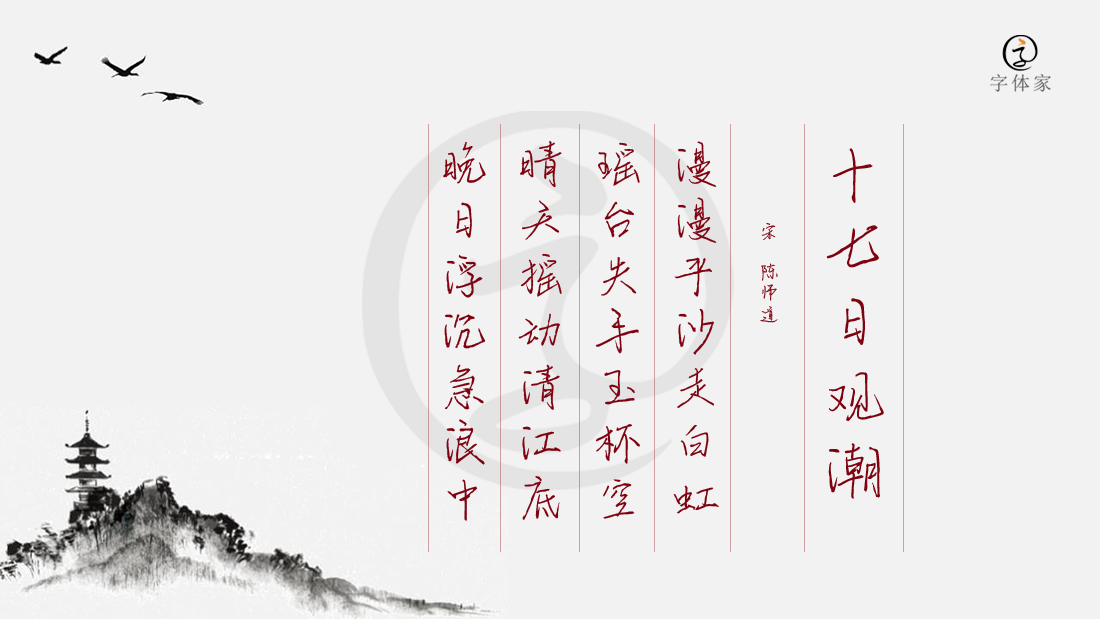 十七日观潮
宋 陈师道
漫漫平沙走白虹
瑶台失手玉杯空
晴天摇动清江底
晚日浮沉急浪中
字体家